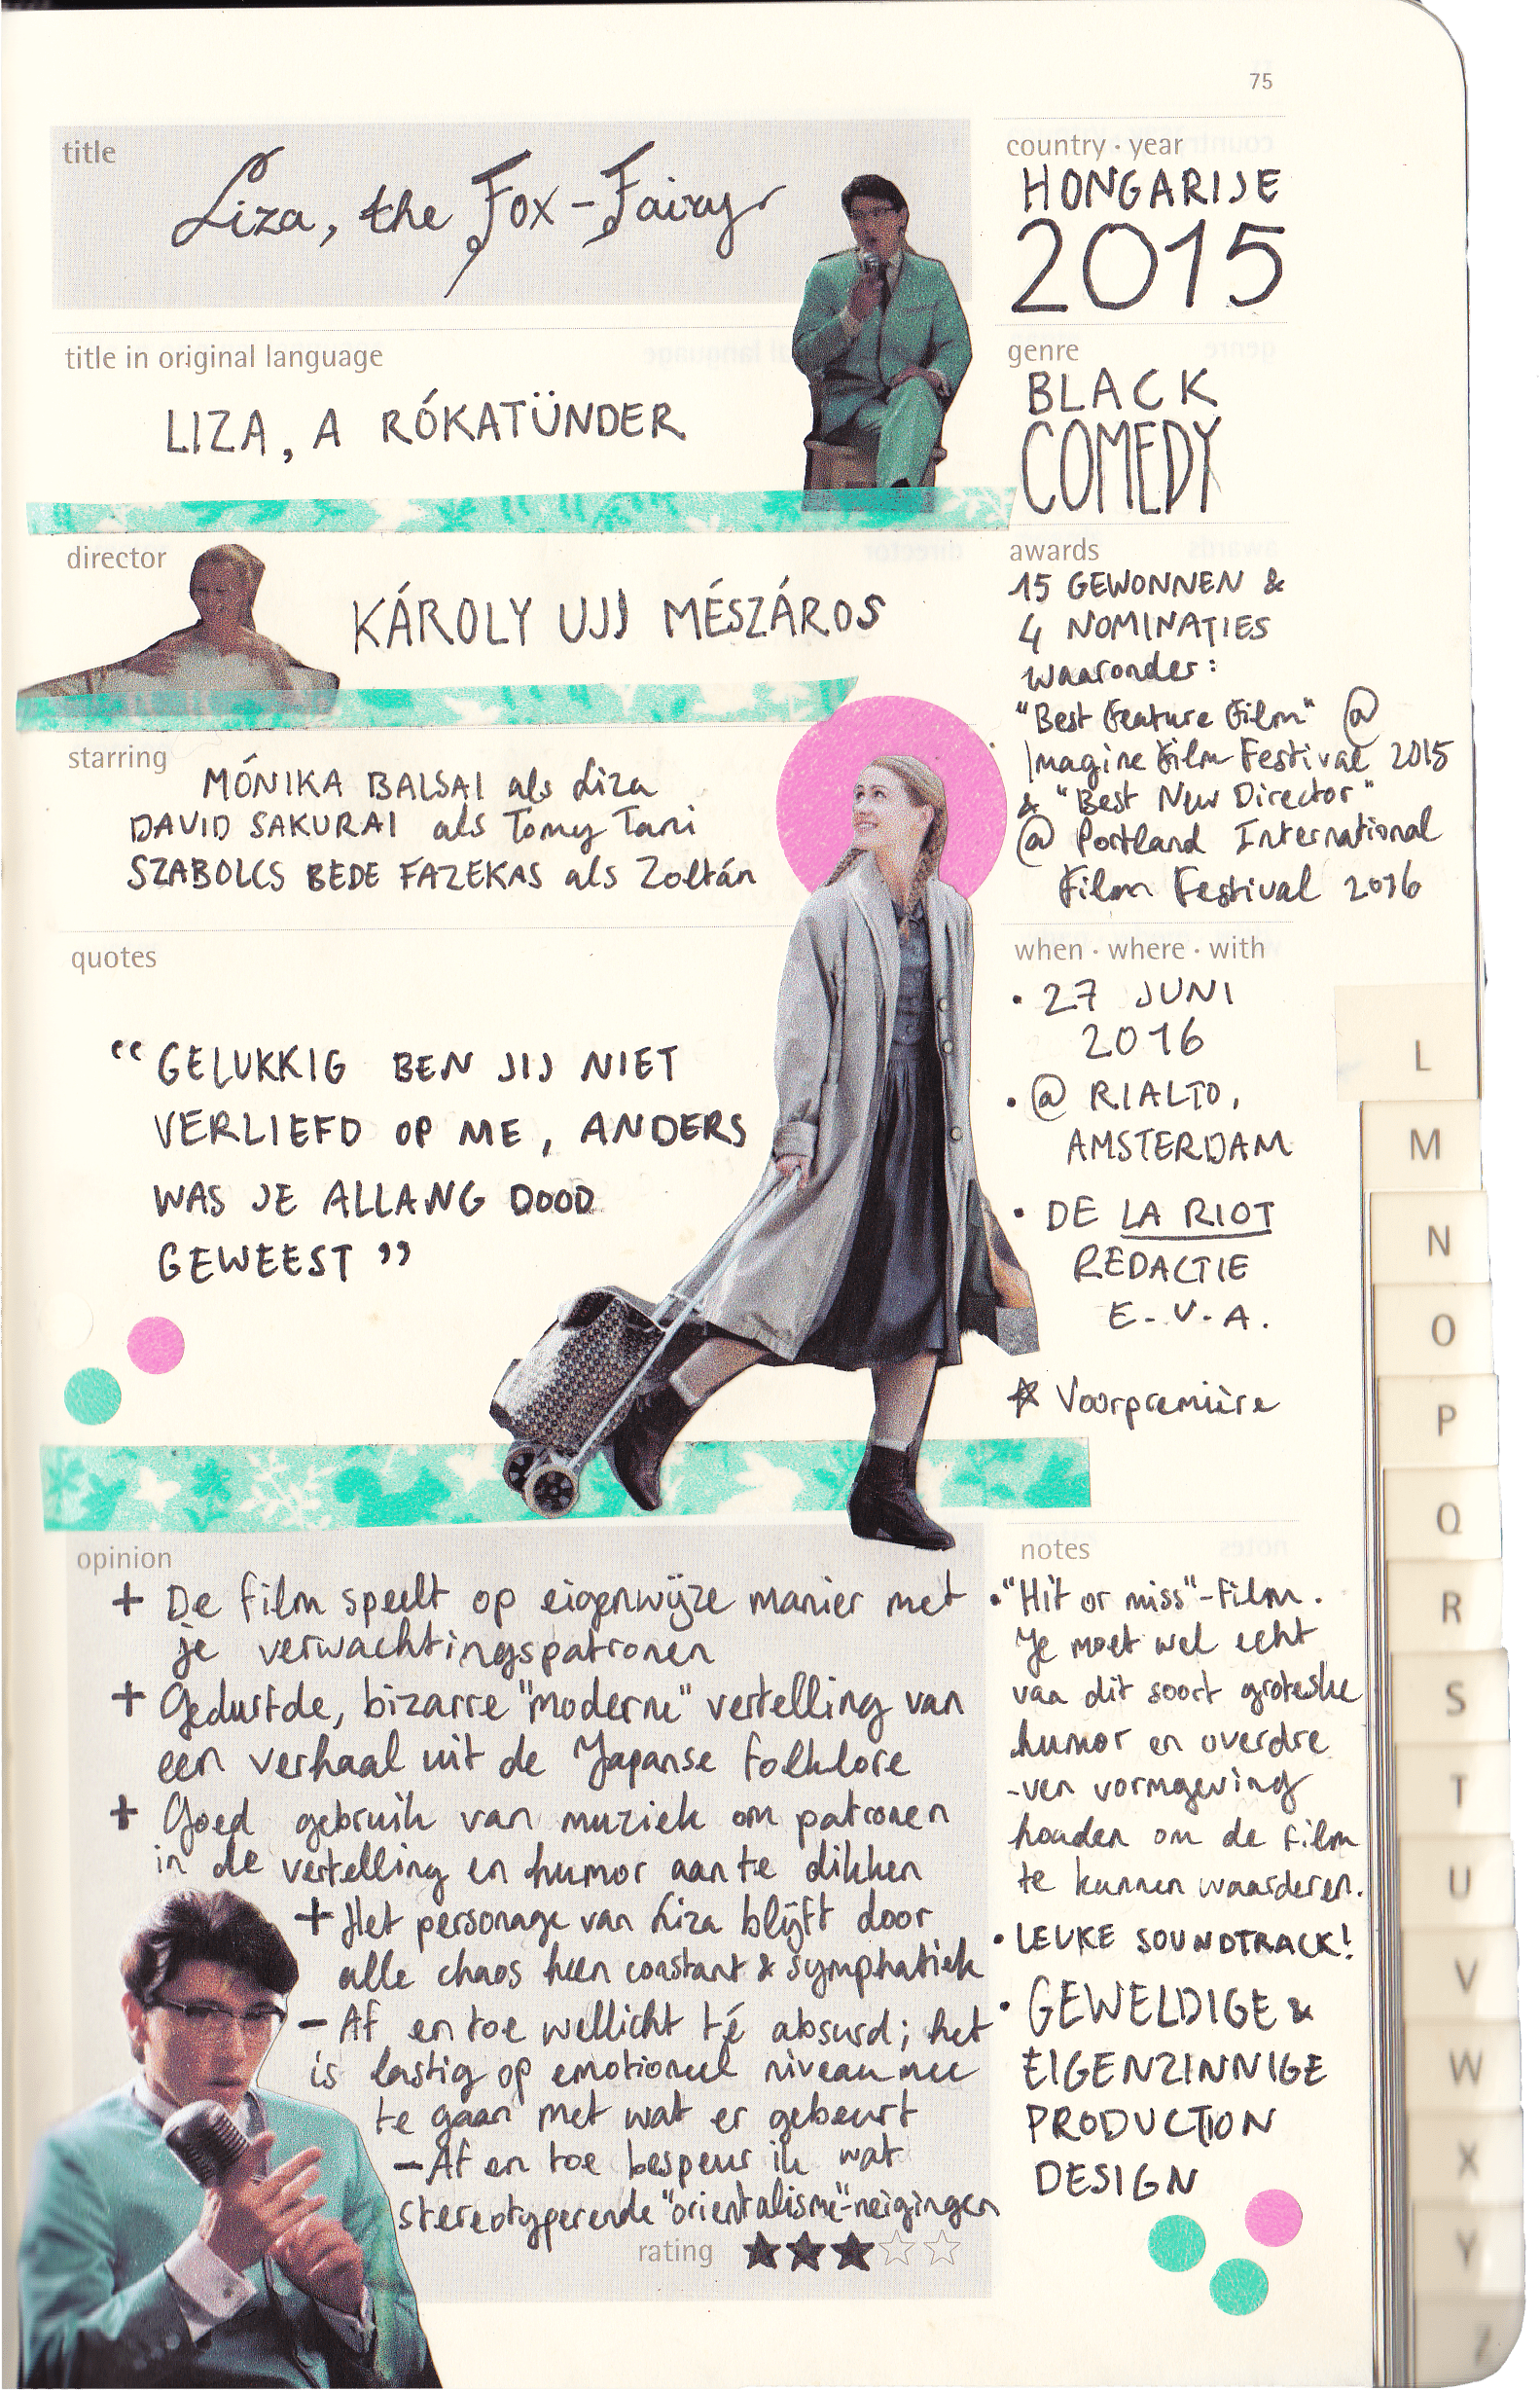 75
title
Liza, the Fox-Fairy
country · year
HONGARIJE
2015
title in original language
LIZA, A RÓKATÜNDER
genre
BLACK
COMEDY
director
KÁROLY UJJ MÉSZÁROS
awards
15 GEWONNEN &
4 NOMINATIES
waaronder:
"Best Feature Film" @
Imagine Film Festival 2015
& "Best New Director"
@ Portland International
Film Festival 2016
starring
MÓNIKA BALSAI als Liza
DAVID SAKURAI als Tomy Tani
SZABOLCS BEDE FAZEKAS als Zoltán
quotes
"GELUKKIG BEN JIJ NIET
VERLIEFD OP ME, ANDERS
WAS JE ALLANG DOOD
GEWEEST"
when · where · with
• 27 JUNI
2016
• @ RIALTO,
AMSTERDAM
• DE LA RIOT
REDACTIE
E.V.A.
☆ Voorpremière
opinion
+ De film speelt op eigenwijze manier met
je verwachtingspatronen
+ Gedurfde, bizarre "moderne" vertelling van
een verhaal uit de Japanse folklore
+ Goed gebruik van muziek om patronen
in de vertelling en humor aan te dikken
+ Het personage van Liza blijft door
alle chaos heen constant & symphatiek
- Af en toe wellicht té absurd; het
is lastig op emotioneel niveau mee
te gaan met wat er gebeurt
- Af en toe bespeur ik wat
stereotyperende "orientalisme"-neigingen
rating ★★★☆☆
notes
• "Hit or miss"-film.
Je moet wel echt
van dit soort groteske
humor en overdre
-ven vormgeving
houden om de film
te kunnen waarderen.
• LEUKE SOUNDTRACK!
• GEWELDIGE &
EIGENZINNIGE
PRODUCTION
DESIGN
L
M
N
O
P
Q
R
S
T
U
V
W
X
Y
Z